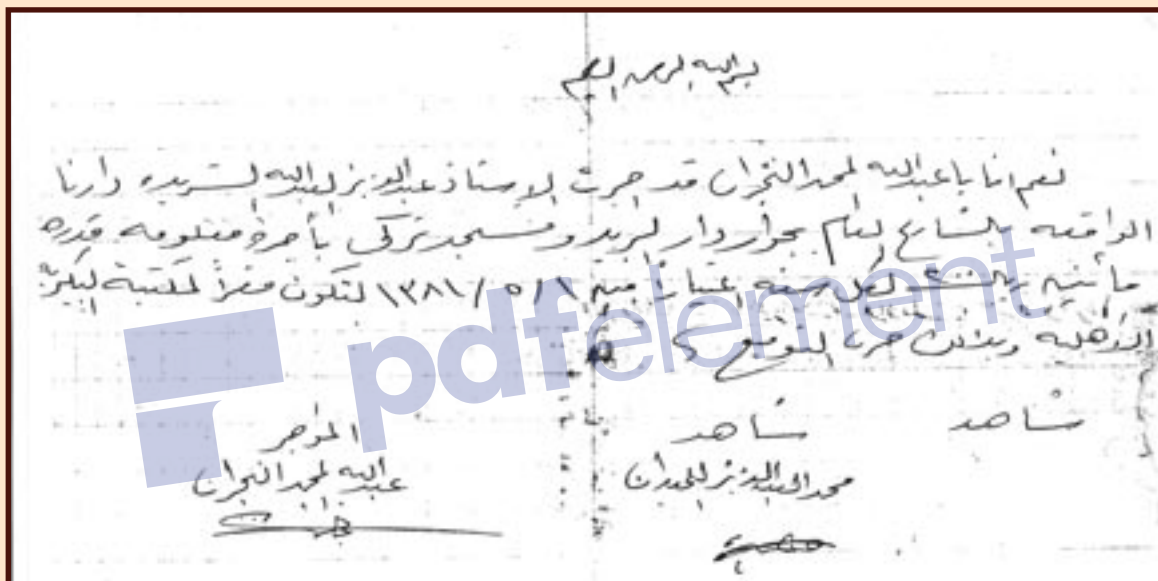 بسم الله الرحمن الرحيم
نعم انا يا عبدالله المحمد النجران قد اجرت الاستاذ عبدالعزيز العبدالله الشريده دارنا
الواقعه بالشارع العام بجوار دار البريد ومسجد تركي بأجرة معلومه قدره
مأتين ريال لكل سنه اعتباراً من ١ / ٥ / ١٣٨١ لتكون مقراً لمكتبة
الأهليه وبذلك جرى التوقيع
شاهد
شاهد
محمد العبدالعزيز
المؤجر
عبدالله المحمد النجران
pdfelement